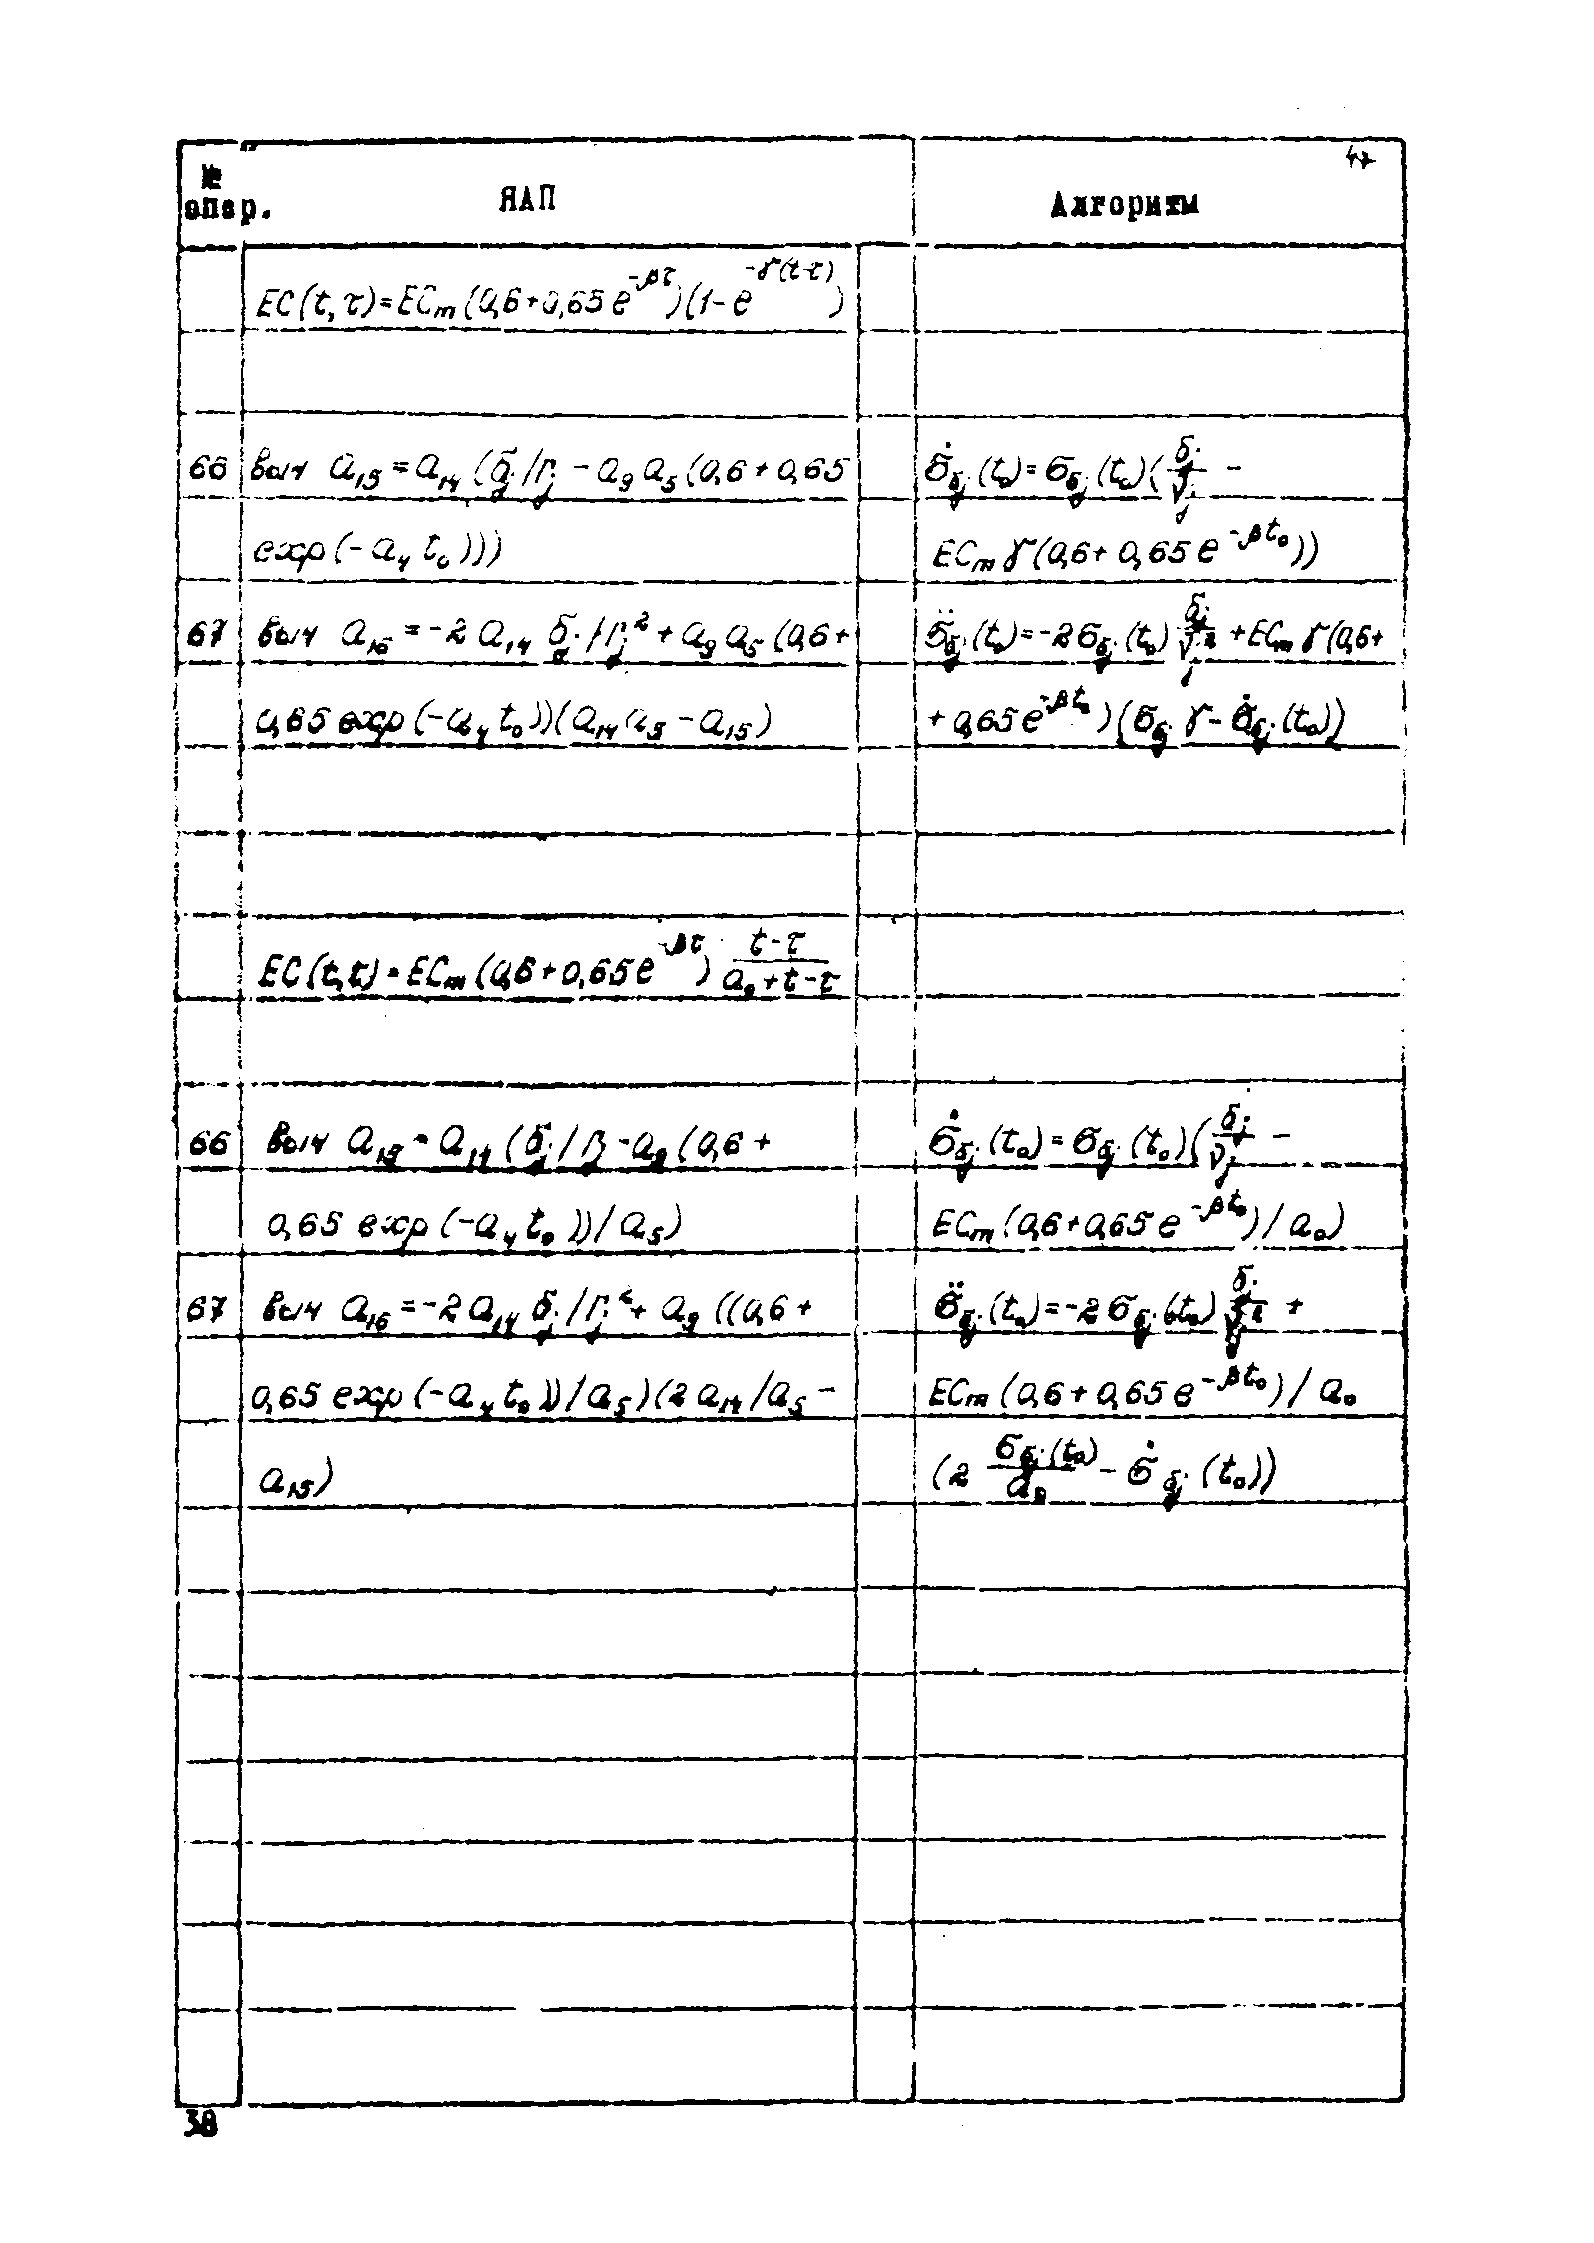 №
опер.
ЯАП
Алгоритм
EC(t,τ)=ECm(0,6+0,65e^-βτ)(1-e^-γ(t-τ))
66 выч a15=a14(бj/Гj-a9a5(0,6+0,65
σ̇бj(t0)=σбj(t0)(бj/νj-
exp(-a4t0)))
ECmγ(0,6+0,65e^-βt0))
67 выч a16=-2a14бj/Гj²+a9a5(0,6+
σ̈бj(t0)=-2σбj(t0)бj/νj²+ECmγ(0,6+
0,65exp(-a4t0))(a14a5-a15)
+0,65e^-βt0)(σбjγ-σ̇бj(t0))
EC(t,τ)=ECm(0,6+0,65e^-βτ) t-τ/a0+t-τ
66 выч a15=a14(бj/Гj-a9(0,6+
σ̇бj(t0)=σбj(t0)(бj/νj-
0,65exp(-a4t0))/a5)
ECm(0,6+0,65e^-βt0)/a0)
67 выч a16=-2a14бj/Гj²+a9((0,6+
σ̈бj(t0)=-2σбj(t0)бj/νj²+
0,65exp(-a4t0))/a5)(2a14/a5-
ECm(0,6+0,65e^-βt0)/a0
a15)
(2 σбj(t0)/a0-σ̇бj(t0))
38